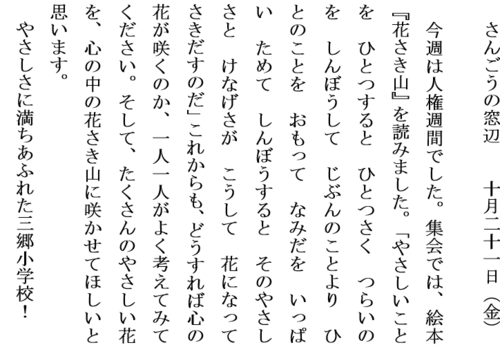 さんごうの窓辺　　十月二十一日（金）
今週は人権週間でした。集会では、絵本
『花さき山』を読みました。「やさしいこと
を　ひとつすると　ひとつさく　つらいの
を　しんぼうして　じぶんのことより　ひ
とのことを　おもって　なみだを　いっぱ
い　ためて　しんぼうすると　そのやさし
さと　けなげさが　こうして　花になって
さきだすのだ」これからも、どうすれば心の
花が咲くのか、一人一人がよく考えてみて
ください。そして、たくさんのやさしい花
を、心の中の花さき山に咲かせてほしいと
思います。
やさしさに満ちあふれた三郷小学校！